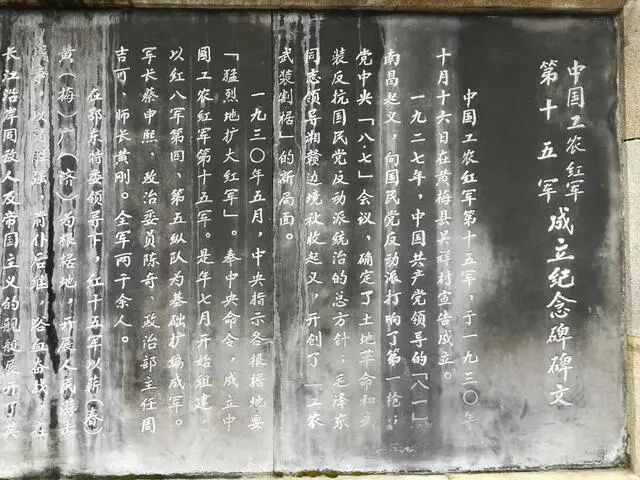 中国工农红军
第十五军成立纪念碑碑文
中国工农红军第十五军，于一九三〇年
十月十六日在黄梅县吴祥村宣告成立。
一九二七年，中国共产党领导的「八一」
南昌起义，向国民党反动派打响了第一枪；
党中央「八七」会议，确定了土地革命和武
装反抗国民党反动派统治的总方针；毛泽东
同志领导湘赣边境秋收起义，开创了「工农
武装割据」的新局面。
一九三〇年五月，中央指示各根据地要
「猛烈地扩大红军」。奉中央命令，成立中
国工农红军第十五军。是年七月开始组建，
以红八军第四、第五纵队为基础扩编成军。
军长蔡申熙、政治委员陈奇、政治部主任周
吉可 师长黄刚。全军两千余人。
在鄂东特委领导下，红十五军以蕲（春）
黄（梅）广（济）为根据地，开展人民游击
争，以弱胜强，前仆后继，浴血奋战，在
长江沿岸同敌人及帝国主义的舰艇展开了英